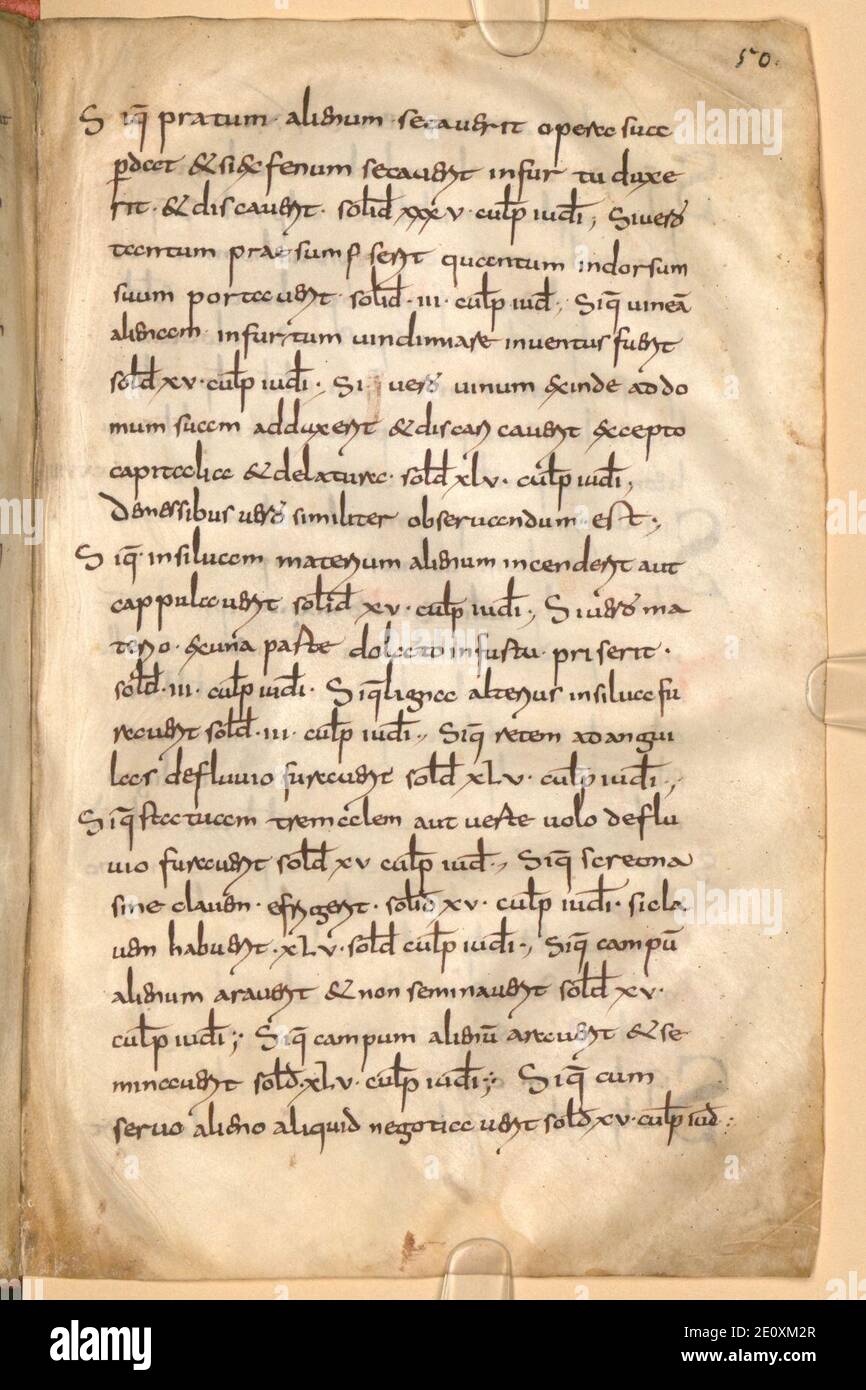 50.
Siq̄ pratum · alienum · secaverit opera sua
p̱dat & si & fenum secaverit infur tu duxe
rit · & discaverit · solid̄ xxxv · cul̄p iud̄i ,, Si vero
tantum praesumpserit quantum indorsum
suum portaverit · solid̄ · iii · cul̄p iud̄ ,, Siq̄ vineā
alienam · infurtum vindimiare inventus fuerit
sol̄d xv · cul̄p iud̄i ,, Si vero vinum exinde ad do
mum suam adduxerit & discar caverit excepto
capitalia & delatura · sol̄d xlv · cul̄p iud̄i ,,
Demessibus vero similiter observandum est ,,
Siq̄ · insilvam materium alienum incenderit aut
cappulaverit solid̄ xv · cul̄p iud̄i ,, Si vero ma
terio · exuna parte dolato infustu · priserit ·
sol̄d · iii · cul̄p iud̄i · Siq̄ ligna alterius insilva fu
raverit sol̄d · iii · cul̄p iud̄i ,, Siq̄ retem ad angui
las defluvio furaverit sol̄d xLv · cul̄p iud̄i ,,
Siq̄ statuam tremaclem aut verte volo deflu
vio furaverit sol̄d xv cul̄p iud̄ ,, Siq̄ screona
sine claven · efrigerit · solid̄ xv · cul̄p iud̄i · si cla
ven habuerit · xLv · sol̄d cul̄p iud̄i ,, Siq̄ campū
alienum araverit & non seminaverit sol̄d xv ·
cul̄p iud̄i ;, Siq̄ campum alienū araverit & se
minaverit sol̄d · xLv · cul̄p iud̄i ;, Siq̄ cum
servo alieno aliquid negotia verit sol̄d xv · cul̄p iud̄ ;
alamy
Image ID: 2E0XM2R
www.alamy.com